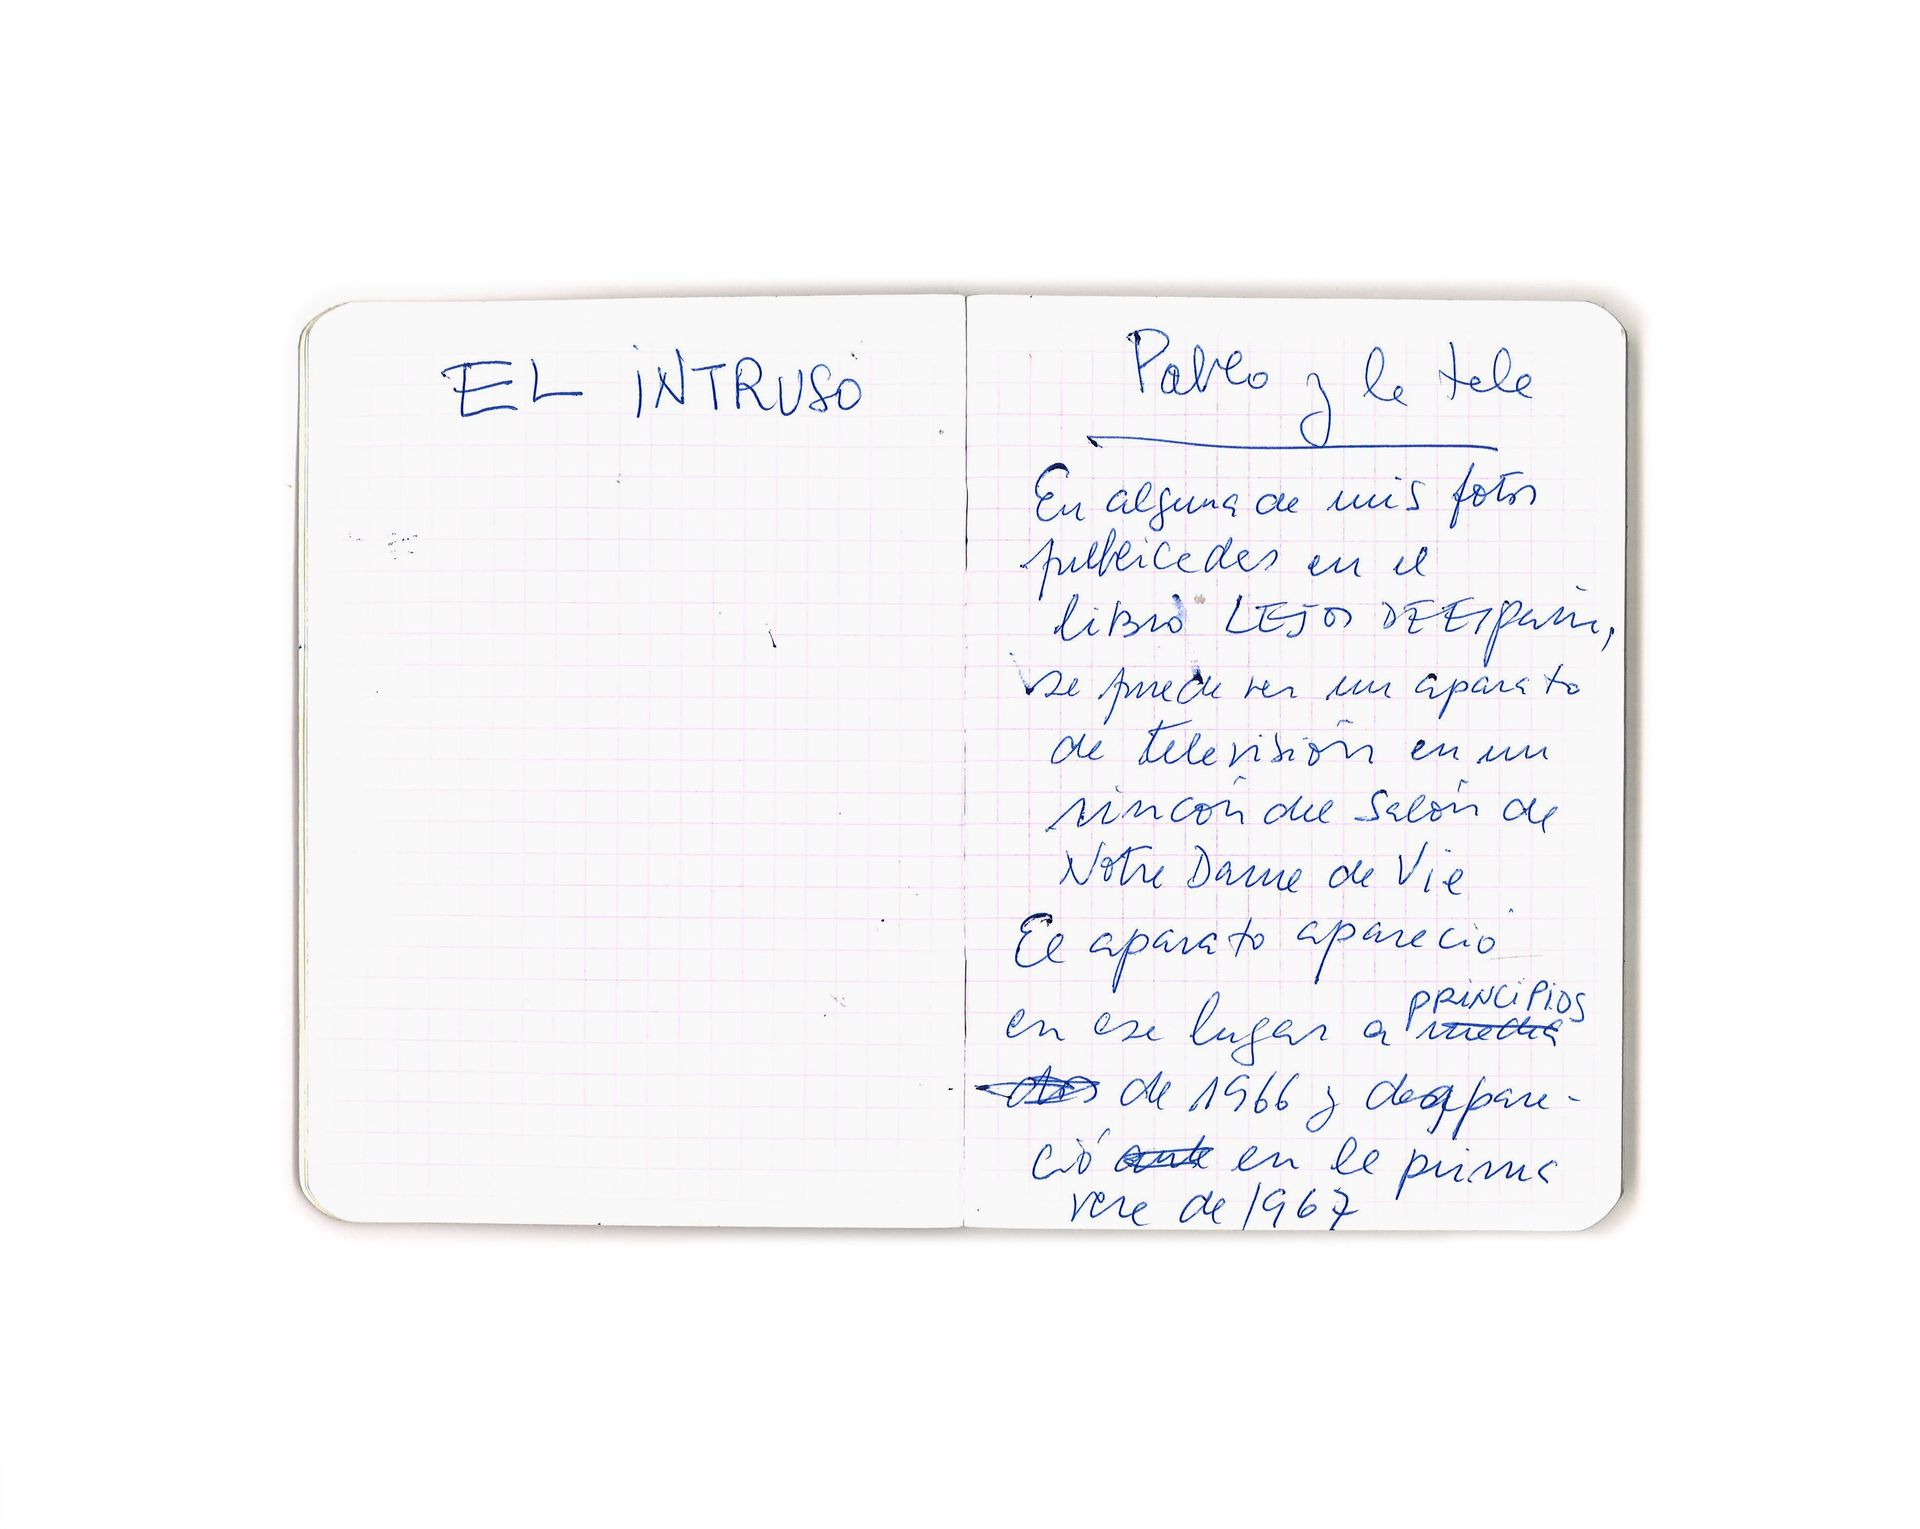 EL INTRUSO
Pablo y la tele
En alguna de mis fotos
publicadas en el
libro LEJOS DE España,
se puede ver un aparato
de televisión en un
rincón del salón de
Notre Dame de Vie
El aparato apareció
en ese lugar a media PRINCIPIOS
dos de 1966 y desapare-
ció ante en la prima
vera de 1967